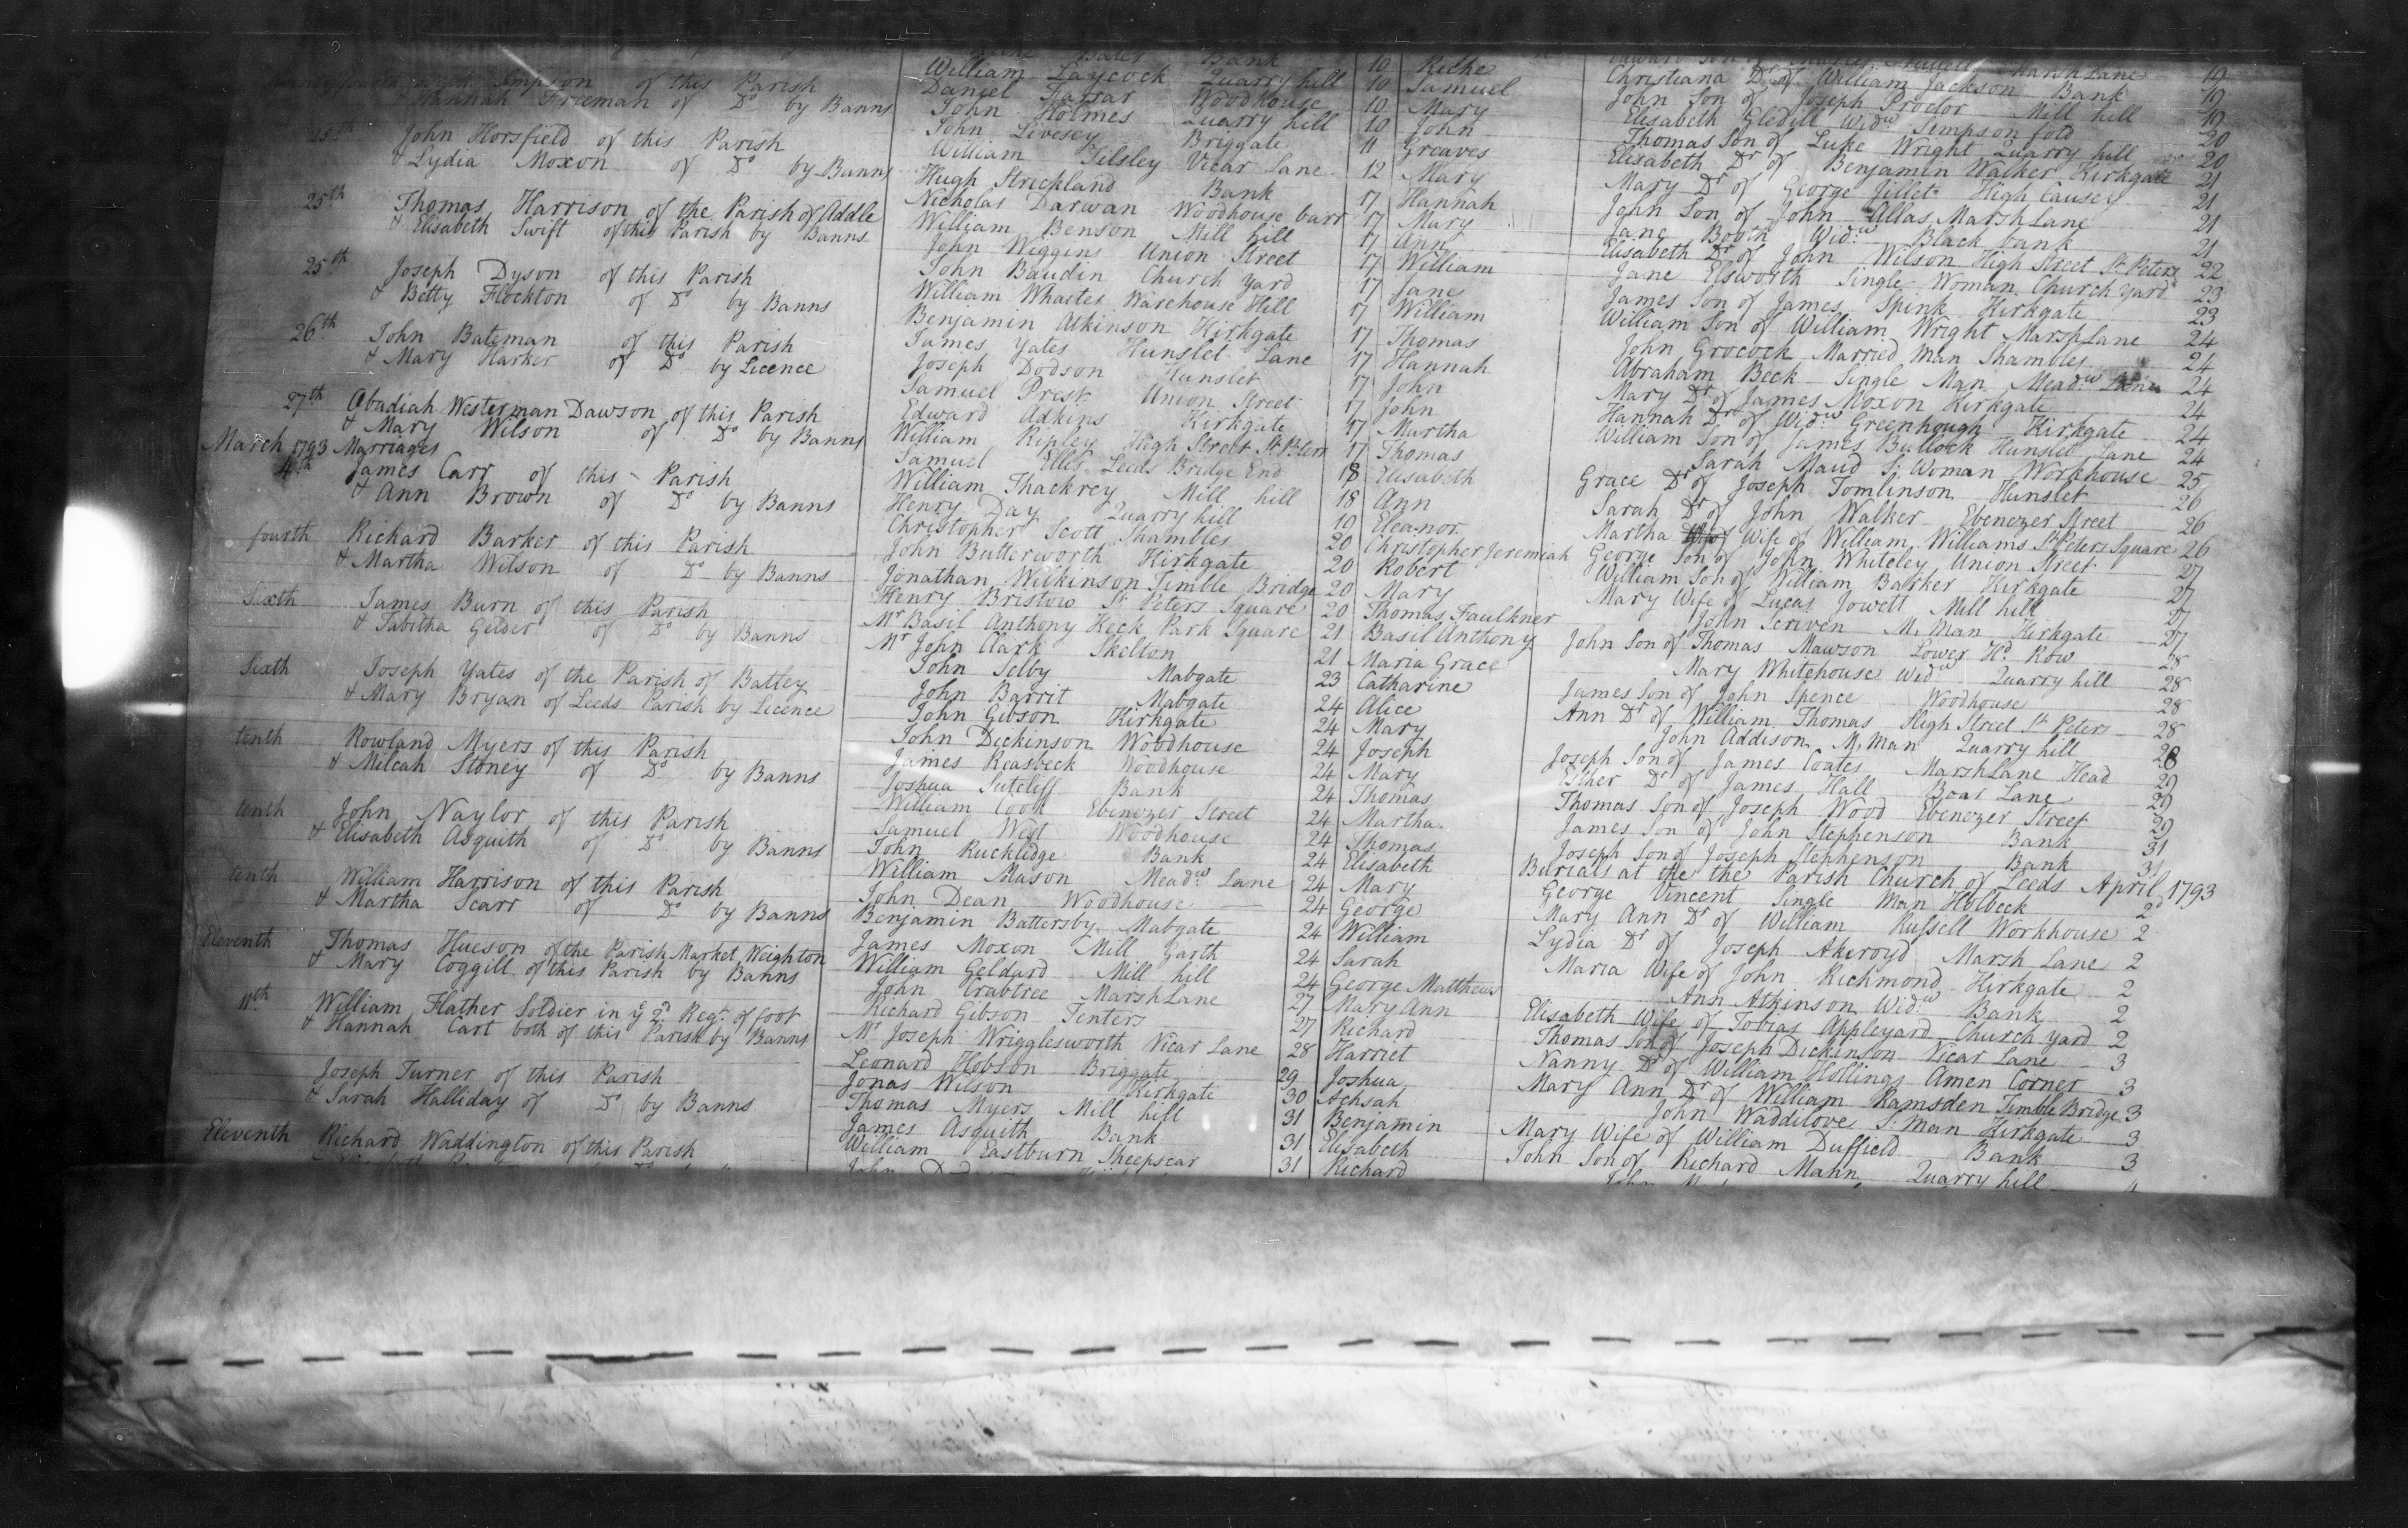 of this Parish
& Hannah Freeman of Do by Banns
25th John Horsfield of this Parish
& Lydia Moxon of Do by Banns
25th Thomas Harrison of the Parish of Addle
& Elisabeth Swift of this Parish by Banns
25th Joseph Dyson of this Parish
& Betty Flockton of Do by Banns
26th John Bateman of this Parish
& Mary Harker of Do by Licence
27th Obadiah Westerman Dawson of this Parish
& Mary Wilson of Do by Banns
March 1793 Marriages
4th James Carr of this Parish
& Ann Brown of Do by Banns
fourth Richard Barker of this Parish
& Martha Wilson of Do by Banns
Sixth James Burn of this Parish
& Tabitha Gelder of Do by Banns
Sixth Joseph Yates of the Parish of Batley
& Mary Bryan of Leeds Parish by Licence
tenth Rowland Myers of this Parish
& Milcah Stoney of Do by Banns
tenth John Naylor of this Parish
& Elisabeth Asquith of Do by Banns
tenth William Harrison of this Parish
& Martha Scarr of Do by Banns
Eleventh Thomas Hueson of the Parish Market Weighton
& Mary Coggill of this Parish by Banns
11th William Flather Soldier in ye 2d Regt. of foot
& Hannah Cart both of this Parish by Banns
Joseph Turner of this Parish
& Sarah Halliday of Do by Banns
Eleventh Richard Waddington of this Parish
Bank 10
William Laycock Quarry hill 10 Samuel
Daniel Farrar Woodhouse 10 Mary
John Holmes Quarry hill 10 John
John Livesey Briggate 11 Greaves
William Tilsley Vicar Lane 12 Mary
Hugh Strickland Bank 17 Hannah
Nicholas Darwan Woodhouse barr 17 Mary
William Benson Mill hill 17 Ann
John Wiggins Union Street 17 William
John Baudin Church Yard 17 Jane
William Whaites Warehouse Hill 17 William
Benjamin Atkinson Kirkgate 17 Thomas
James Yates Hunslet Lane 17 Hannah
Joseph Dodson Hunslet 17 John
Samuel Prest Union Street 17 John
Edward Adkins Kirkgate 17 Martha
William Ripley High Street St Peters 17 Thomas
Samuel Elles Leeds Bridge End 18 Elisabeth
William Thackrey Mill hill 18 Ann
Henry Day Quarry hill 19 Eleanor
Christopher Scott Shambles 20 Christopher Jeremiah
John Butterworth Kirkgate 20 Robert
Jonathan Wilkinson Timble Bridge 20 Mary
Henry Bristow St Peters Square 20 Thomas Faulkner
Mr Basil Anthony Heck Park Square 21 Basil Anthony
Mr John Clark Skelton 21 Maria Grace
John Selby Mabgate 23 Catharine
John Barrit Mabgate 24 Alice
John Gibson Kirkgate 24 Mary
John Dickinson Woodhouse 24 Joseph
James Reasbeck Woodhouse 24 Mary
Joshua Sutcliff Bank 24 Thomas
William Cook Ebenezer Street 24 Martha
Samuel West Woodhouse 24 Thomas
John Rucklidge Bank 24 Elisabeth
William Mason Meadw Lane 24 Mary
John Dean Woodhouse 24 George
Benjamin Battersby Mabgate 24 William
James Moxon Mill Garth 24 Sarah
William Geldard Mill hill 24 George Matthews
John Crabtree Marsh Lane 27 Mary Ann
Richard Gibson Tenters 27 Richard
Mr Joseph Wrigglesworth Vicar Lane 28 Harriet
Leonard Hobson Briggate 29 Joshua
Jonas Wilson Kirkgate 30 Achsah
Thomas Myers Mill hill 31 Benjamin
James Asquith Bank 31 Elisabeth
William Eastburn Sheepscar 31 Richard
Marsh Lane 19
Christiana Dr of William Jackson Bank 19
John Son of Joseph Proctor Mill hill 19
Elisabeth Gledill Widw Simpson fold 20
Thomas Son of Luke Wright Quarry hill 20
Elisabeth Dr of Benjamin Walker Kirkgate 21
Mary Dr of George Jillet High Causey 21
John Son of John Allas Marsh Lane 21
Jane Booth Widw Black bank 21
Elisabeth Dr of John Wilson High Street St Peters 22
Jane Elsworth Single Woman Church Yard 23
James Son of James Spink Kirkgate 23
William Son of William Wright Marsh Lane 24
John Grocock Married Man Shambles 24
Abraham Beck Single Man Meadw Lane 24
Mary Dr of James Moxon Kirkgate 24
Hannah Dr of Widw Greenhough Kirkgate 24
William Son of James Bullock Hunslet Lane 24
Sarah Maud S. Woman Workhouse 25
Grace Dr of Joseph Tomlinson Hunslet 26
Sarah Dr of John Walker Ebenezer Street 26
Martha Wife of William Williams St Peters Square 26
George Son of John Whiteley Union Street 27
William Son of William Barker Kirkgate 27
Mary Wife of Lucas Jowett Mill hill 27
John Scriven M. Man Kirkgate 27
John Son of Thomas Mawson Lower Hd Row 28
Mary Whitehouse Widw Quarry hill 28
James Son of John Spence Woodhouse 28
Ann Dr of William Thomas High Street St Peters 28
John Addison M. Man Quarry hill 28
Joseph Son of James Coates Marsh Lane Head 29
Esther Dr of James Hall Boar Lane 29
Thomas Son of Joseph Wood Ebenezer Street 29
James Son of John Stephenson Bank 31
Joseph Son of Joseph Stephenson Bank 31
Burials at the the Parish Church of Leeds April 1793
George Vincent Single Man Holbeck 2d
Mary Ann Dr of William Russell Workhouse 2
Lydia Dr of Joseph Akeroyd Marsh Lane 2
Maria Wife of John Richmond Kirkgate 2
Ann Atkinson Widw Bank 2
Elisabeth Wife of Tobias Appleyard Church Yard 2
Thomas Son of Joseph Dickinson Vicar Lane 3
Nanny Dr of William Hollings Amen Corner 3
Mary Ann Dr of William Ramsden Timble Bridge 3
John Waddilove S. Man Kirkgate 3
Mary Wife of William Duffield Bank 3
John Son of Richard Mann Quarry hill